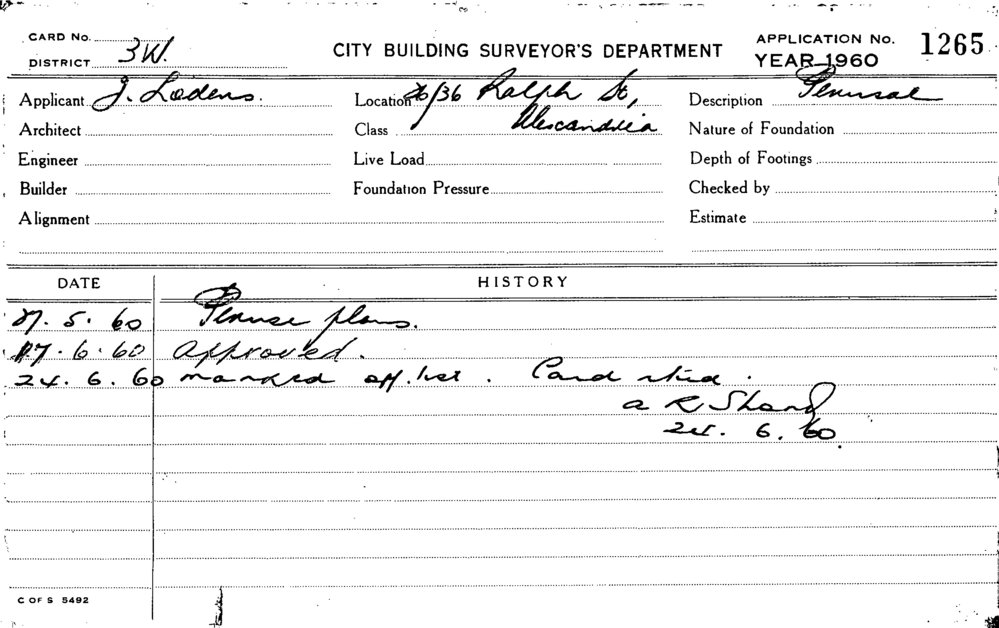 CARD No.
DISTRICT 3W.
CITY BUILDING SURVEYOR'S DEPARTMENT
APPLICATION No. 1265
YEAR 1960
Applicant J. Lodens.
Location 26/36 Ralph St,
Description Perusal
Architect
Class Alexandria
Nature of Foundation
Engineer
Live Load
Depth of Footings
Builder
Foundation Pressure
Checked by
Alignment
Estimate
DATE HISTORY
27. 5. 60 Peruse plans.
17. 6. 60 Approved.
24. 6. 60 marked off list. Card
a R Shand
24. 6. 60.
C OF S 5492